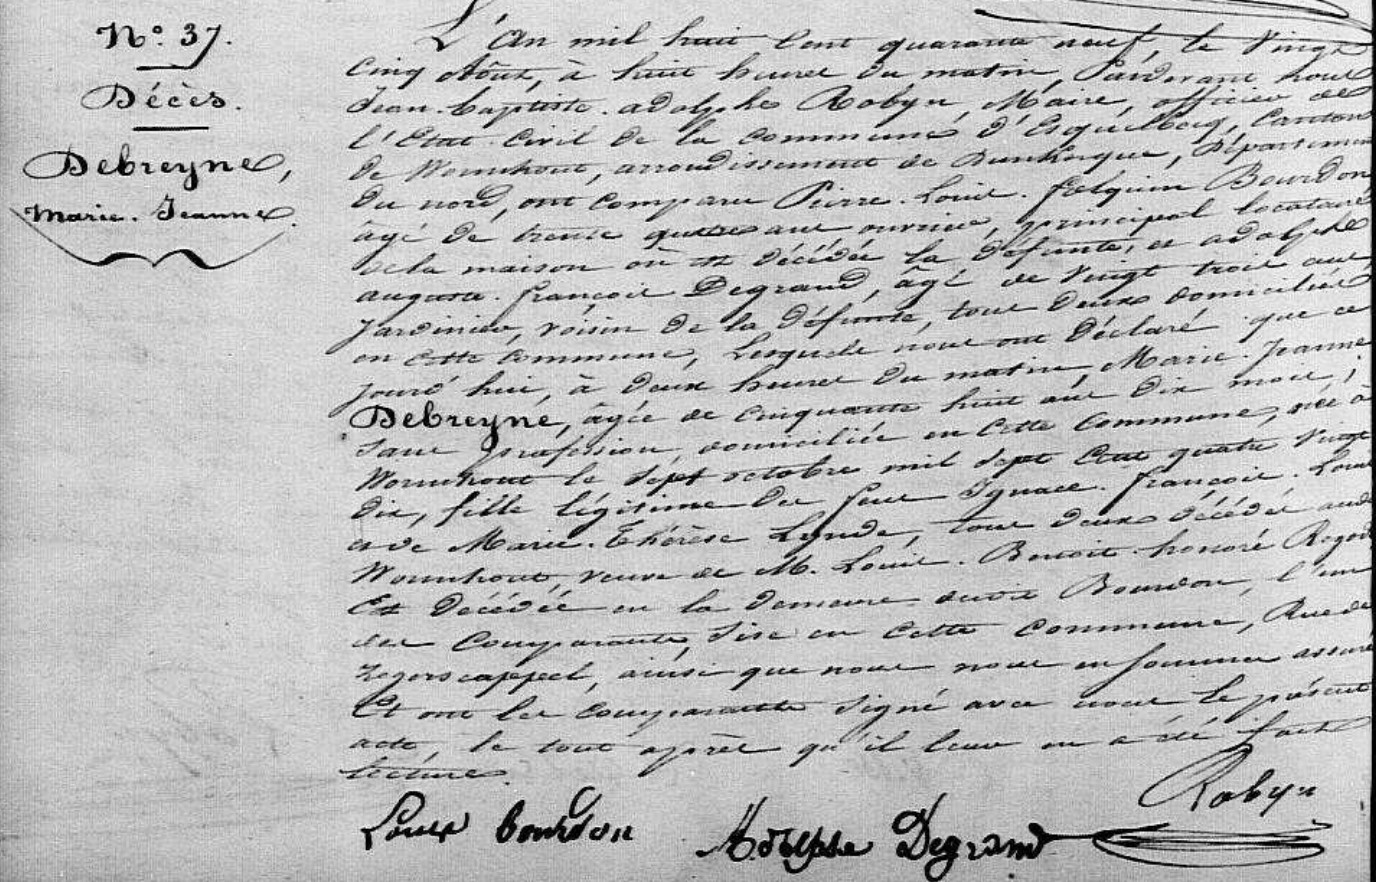 N.° 37.
Décès.
Debreyne,
Marie-Jeanne.
L'An mil huit cent quarante neuf, le vingt
cinq Août, à huit heures du matin, Pardevant nous
Jean-Baptiste-adolphe Robyn, Maire, officier de
l'Etat-civil de la commune d'Esquelbecq, Canton
de Wormhout, arrondissement de Dunkerque, Département
du nord, ont comparu Pierre-Louis-Bourdon
âgé de trente quatre ans ouvrier, principal locataire
de la maison où est décédée la défunte, et adolphe
auguste-françois Degrand, âgé de vingt trois ans
Jardinier, voisin de la défunte, tous deux domiciliés
en cette commune, Lesquels nous ont déclaré que ce
jourd'hui, à deux heures du matin, Marie-Jeanne
Debreyne, âgée de cinquante huit ans dix mois,
sans profession, domiciliée en cette commune, née à
Wormhout le sept octobre mil sept cent quatre vingt
dix, fille légitime des feus Ignace-françois-Louis
et de Marie-Thérèse Lynde, tous deux décédés audit
Wormhout, veuve de M. Louis-Benoit-honoré
Est décédée en la demeure dudit Bourdon, l'un
des comparants, sise en cette commune, Rue de
Zegerscappel, ainsi que nous nous en sommes assuré
Et ont les comparants signé avec nous le présent
acte, le tout après qu'il leur en a été fait
lecture.
Louis bourdon
Adolphe Degrand
Robyn